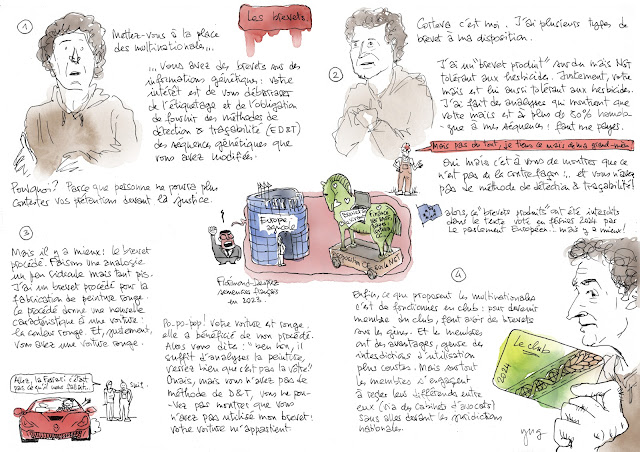 Les brevets
1
Mettez-vous à la place
des multinationales...
... vous avez des brevets sur des
informations génétiques : votre
intérêt est de vous débarrasser
de l'étiquetage et de l'obligation
de fournir des méthodes de
détection & traçabilité (ED&T)
des séquences génétiques que
vous avez modifiées.
Pourquoi? Parce que personne ne pourra plus
contester vos prétentions devant la justice.
2
Corteva c'est moi. J'ai plusieurs types de
brevet à ma disposition.
J'ai un "brevet produit" sur du maïs NGT
tolérant aux herbicides. Justement, votre
maïs est lui aussi tolérant aux herbicides.
J'ai fait des analyses qui montrent que
votre maïs est à plus de 80% homolo-
gue à mes séquences : faut me payer.
Mais pas du tout, je tiens ce maïs de ma grand-mère
Oui mais c'est à vous de montrer que ce
n'est pas de la contrefaçon... et vous n'avez
pas de méthode de détection & traçabilité!
alors, ces "brevets produits" ont été interdits
dans le texte voté en février 2024 par
le parlement Européen! mais y'a mieux!
Europe
agricole
Florimond-Desprez
semences français
en 2023.
3
Mais il y a mieux : le brevet
procédé. Faisons une analogie
un peu ridicule mais tant pis.
J'ai un brevet procédé pour la
fabrication de peinture rouge.
Le procédé donne une nouvelle
caractéristique à une voiture :
la couleur rouge. Et, justement,
vous avez une voiture rouge.
Allez, la Ferrari c'était
pas ce qu'il vous fallait.
Po-po-pop! Votre voiture est rouge
elle a bénéficié de mon procédé.
Alors vous dites : "ben non, il
suffit d'analyser la peinture,
verriez bien que c'est pas la vôtre"
Ouais, mais vous n'avez pas de
méthode de D&T, vous ne pou-
vez pas montrer que vous
n'avez pas utilisé mon brevet :
votre voiture m'appartient.
4
Enfin, ce que proposent les multinationales
c'est de fonctionner en club : pour devenir
membre du club, faut avoir des brevets
sur les gènes. Et les membres
ont des avantages, genre des
interdictions d'utilisation
plus courtes. Mais surtout
les membres s'engagent
à régler leurs différends entre
eux (via des cabinets d'avocats)
sans aller devant les juridictions
nationales.
Le club
2024